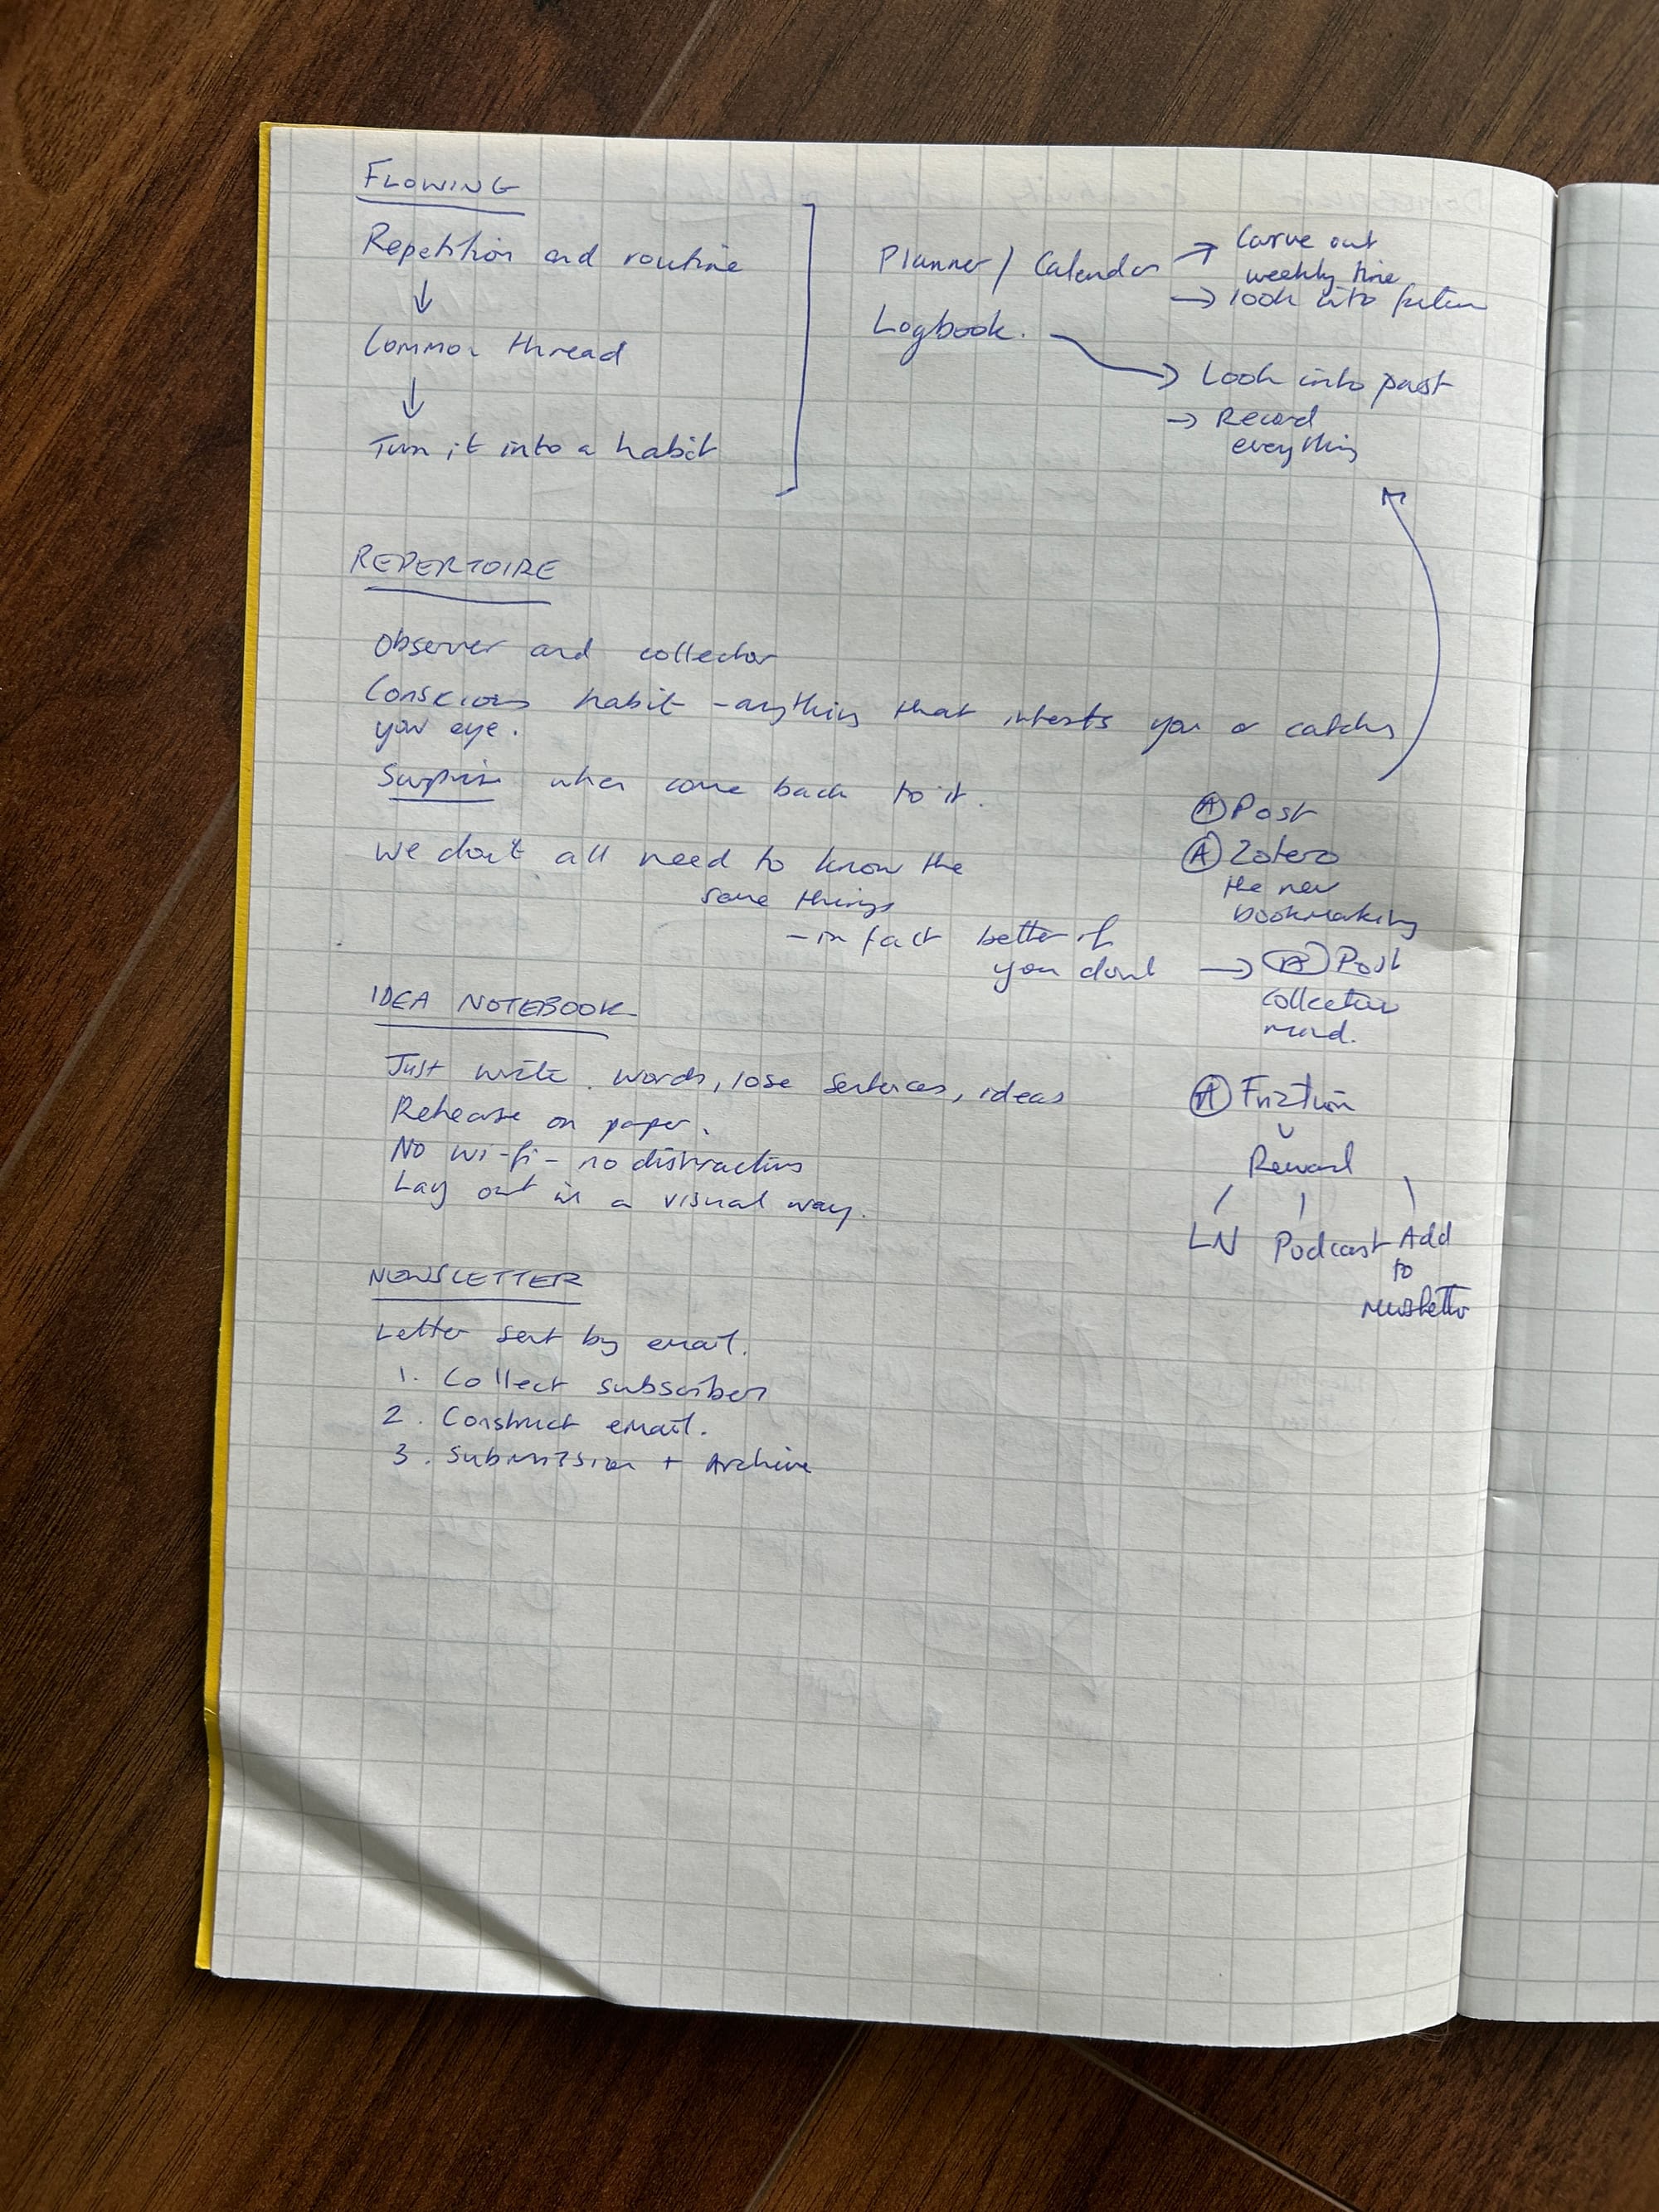 FLOWING
Repetition and routine
↓
Common thread
↓
Turn it into a habit
Planner / Calendar
→ Carve out
weekly time
→ look into future
Logbook.
→ Look into past
→ Record
everything
REPERTOIRE
Observer and collector
Conscious habit - anything that intests you or catches
your eye.
Surprise when come back to it.
We don't all need to know the
same things
- in fact better if
you don't
→ (A) Post
Collective
mind.
(A) Post
(A) Zotero
the new
bookmarking
IDEA NOTEBOOK
Just write. words, lose sentences, ideas
Rehearse on paper.
No wi-fi - no distractions
Lay out in a visual way.
(A) Friction
Reward
LN Podcast Add
to
newsletter
NEWSLETTER
Letter sent by email.
1. Collect subscribers
2. Construct email.
3. Submission + Archive